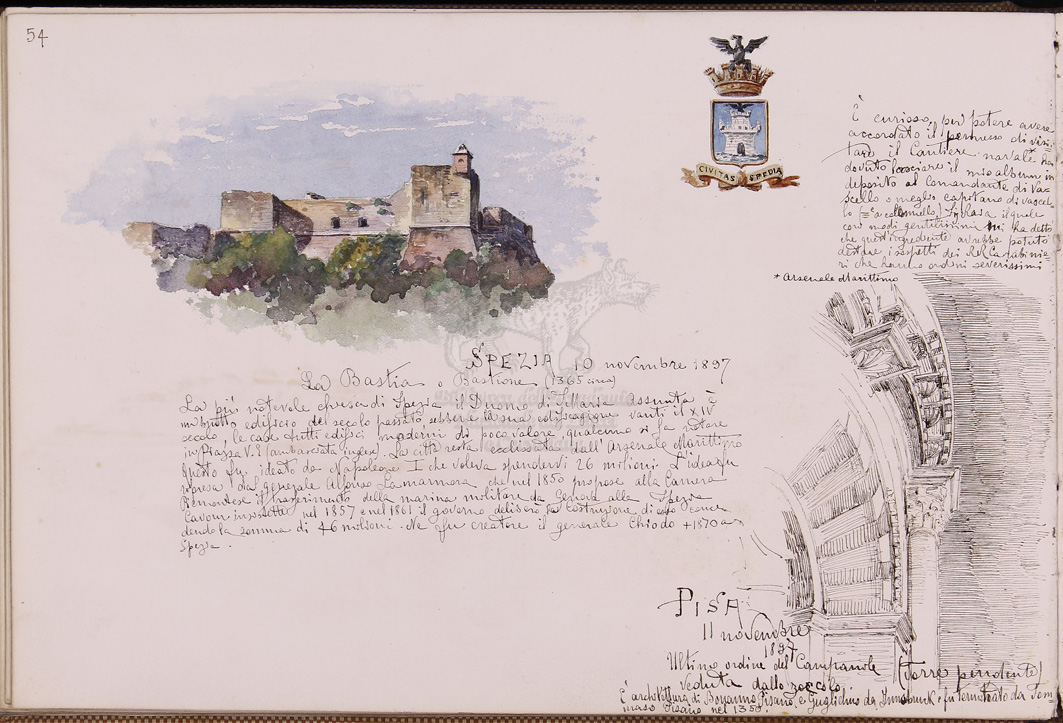 54
CIVITAS SPEDIA
È curioso, per potere avere
accordato il permesso di visi-
tare il Cantiere navale* ho
dovuto lasciare il mio album in
deposito al Comandante di Va-
scello o meglio capitano di vascel-
lo (= a colonnello) il quale
con modi gentilissimi mi ha detto
che quest'ingrediente avrebbe potuto
destare i sospetti dei RR. Carabinie-
ri che hanno ordini severissimi
* Arsenale Marittimo
SPEZIA 10 novembre 1897
La Bastia o Bastione (1365 circa)
La più notevole chiesa di Spezia il Duomo di S. Maria Assunta è
un brutto edificio del secolo passato sebbene la sua edificazione vanti il XIV
secolo, le case tutti edifici moderni di poco valore, qualcuno si fa notare
in Piazza V. E. (ambasciata inglese). La città resta ecclissata dall'Arsenale Marittimo
Questo fu ideato da Napoleone I che voleva spendervi 26 milioni. L'idea fu
ripresa dal generale Alfonso Lamarmora che nel 1850 propose alla Camera
Piemontese il trasferimento della marina militare da Genova alla Spezia
Cavour insistette nel 1857 e nel 1861 il governo deliberò la costruzione di esso
dendo la somma di 46 milioni. Ne fu creatore il generale Chiodo +1870 a
Spezia.
PISA
11 novembre
1897
Ultimo ordine del Campanile (Torre pendente)
veduta dallo zoccolo
È architettura di Bonanno Pisano e Guglielmo da Innsbruck, fu terminato da Tom
maso Pisano nel 1350.